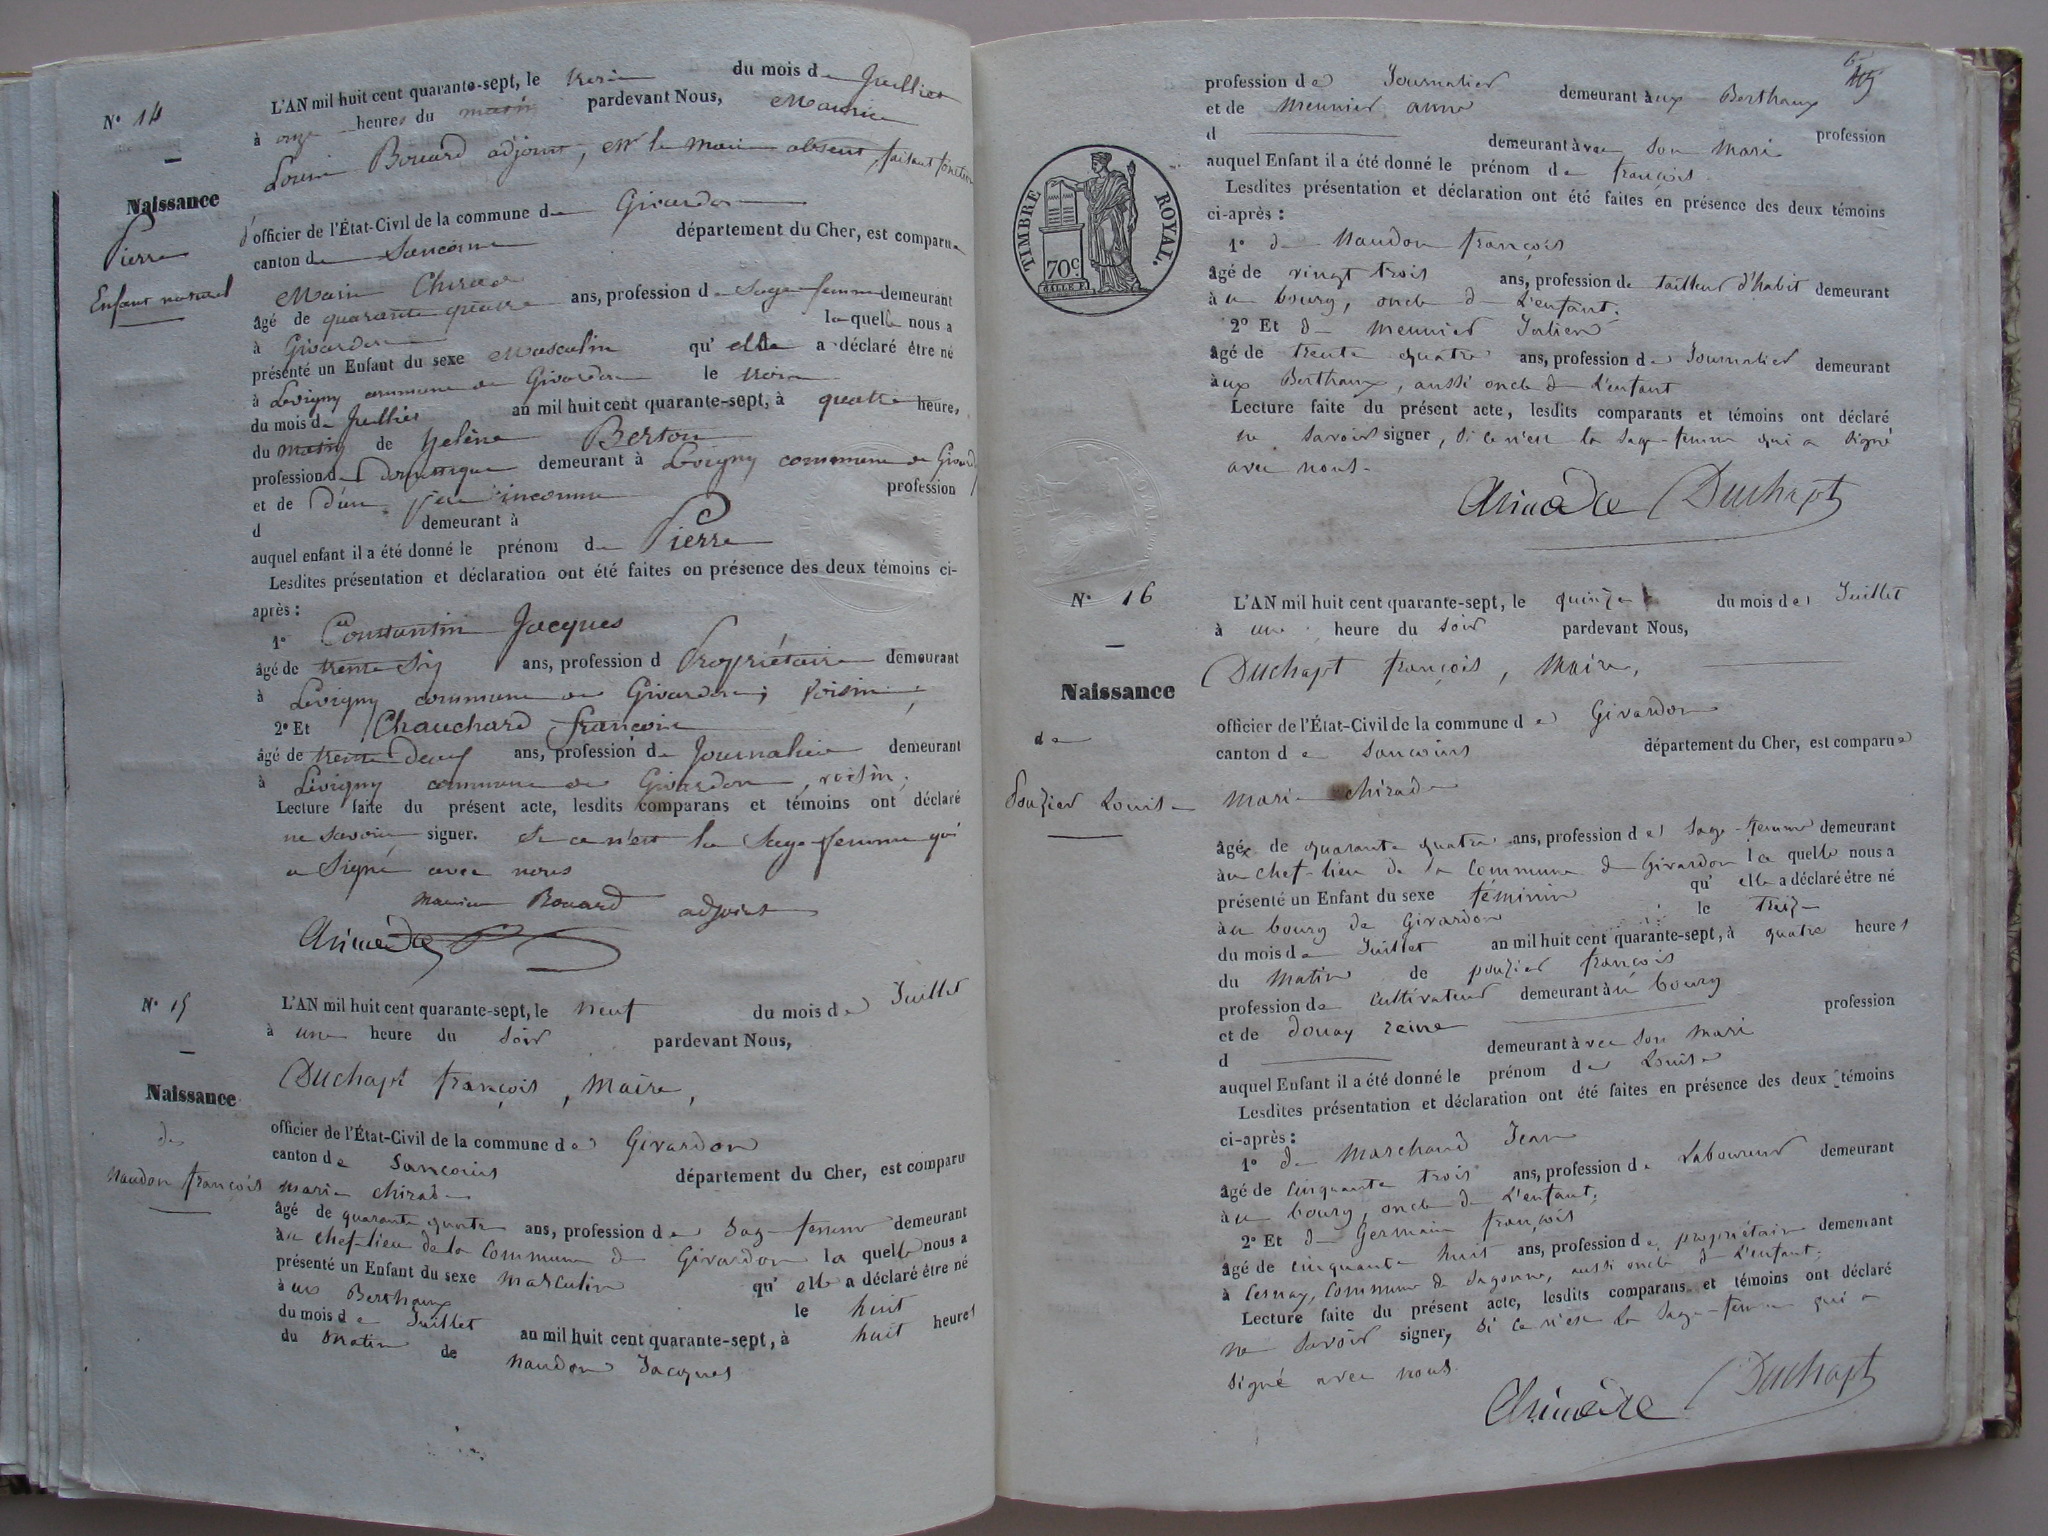 N° 14
Naissance
Pierre
Enfant naturel
L'AN mil huit cent quarante-sept, le trois du mois de Juillet
à onze heures du matin pardevant Nous, Maurice
Louis Bouard adjoint, et le maire absent, faisant fonction
d'officier de l'État-Civil de la commune de Givardon
canton de Sancoins département du Cher, est comparue
Marie Chirade
âgé de quarante quatre ans, profession de Sage femme demeurant
à Givardon la quelle nous a
présenté un Enfant du sexe Masculin qu'elle a déclaré être né
à Lévigny commune de Givardon le trois
du mois de Juillet an mil huit cent quarante-sept, à quatre heure,
du matin de helène Berton
profession de domestique demeurant à Lévigny commune de Givardon
et de d'un père inconnu profession
d demeurant à
auquel enfant il a été donné le prénom de Pierre
Lesdites présentation et déclaration ont été faites en présence des deux témoins ci-
après :
1° Constantin Jacques
âgé de trente six ans, profession d Propriétaire demeurant
à Lévigny commune de Givardon, voisin,
2° Et Chauchard françois
âgé de trente deux ans, profession de Journalier demeurant
à Lévigny commune de Givardon, voisin,
Lecture faite du présent acte, lesdits comparans et témoins ont déclaré
ne savoir signer. Si ce n'est la Sage-femme qui
a Signé avec nous
Maurice Bouard adjoint
Chirade
N° 15
Naissance
de
Naudon françois
L'AN mil huit cent quarante-sept, le neuf du mois de Juillet
à une heure du soir pardevant Nous,
Duchapt françois, Maire,
officier de l'État-Civil de la commune de Givardon
canton de Sancoins département du Cher, est comparu
Marie Chirade
âgé de quarante quatre ans, profession de Sage-femme demeurant
à au chef-lieu de la Commune de Givardon la quelle nous a
présenté un Enfant du sexe Masculin qu'elle a déclaré être né
à aux Berthaux le huit
du mois de Juillet an mil huit cent quarante-sept, à huit heures
du Matin de Naudon Jacques
profession de Journalier demeurant aux Berthaux
et de Meunier anne profession
d demeurant avec son Mari
auquel Enfant il a été donné le prénom de françois
Lesdites présentation et déclaration ont été faites en présence des deux témoins
ci-après :
1° de Naudon françois
âgé de vingt trois ans, profession de tailleur d'habit demeurant
à au bourg, oncle de L'enfant.
2° Et de Meunier Julien
âgé de trente quatre ans, profession de Journalier demeurant
aux Berthaux, aussi oncle de L'enfant
Lecture faite du présent acte, lesdits comparants et témoins ont déclaré
ne savoir signer, Si ce n'est la Sage-femme qui a signé
avec nous.
Chirade Duchapt
TIMBRE ROYAL.
70c.
N° 16
Naissance
de
Pouzier Louise
L'AN mil huit cent quarante-sept, le quinze du mois de Juillet
à une heure du soir pardevant Nous,
Duchapt françois, Maire,
officier de l'État-Civil de la commune de Givardon
canton de Sancoins département du Cher, est comparue
Marie Chirade
âgée de quarante quatre ans, profession de Sage-femme demeurant
au chef-lieu de la Commune de Givardon la quelle nous a
présenté un Enfant du sexe féminin qu'elle a déclaré être né
au bourg de Givardon le treize
du mois de Juillet an mil huit cent quarante-sept, à quatre heures
du Matin de pouzier françois
profession de Cultivateur demeurant au bourg
et de douay reine profession
d demeurant avec Son Mari
auquel Enfant il a été donné le prénom de Louise
Lesdites présentation et déclaration ont été faites en présence des deux témoins
ci-après :
1° de Marchand Jean
âgé de cinquante trois ans, profession de Laboureur demeurant
au bourg, oncle de L'enfant,
2° Et de Germain françois
âgé de cinquante huit ans, profession de propriétaire demeurant
à Cernay, Commune de Sagonne, aussi oncle de L'enfant.
Lecture faite du présent acte, lesdits comparans et témoins ont déclaré
ne savoir signer, Si ce n'est la Sage-femme qui a
signé avec nous
Chirade Duchapt